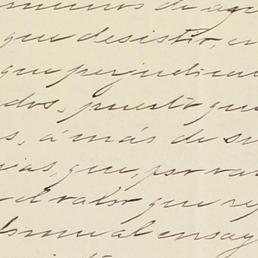 menos de agu
que desistir, en
que perjudica
dos, puesto que
s, á más de su
ias, que, por va
el valor que re
al ensay